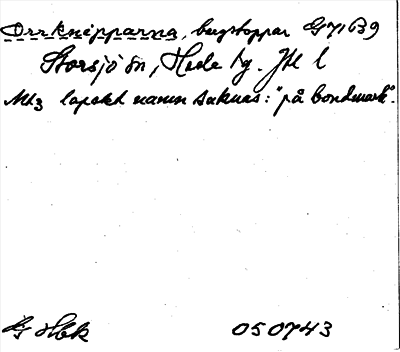 Orrknipparna, bergstoppar G71639
Storsjö sn, Hede tg. Jtl l
Mt3 lapskt namn saknas: "på bondmark".
050743